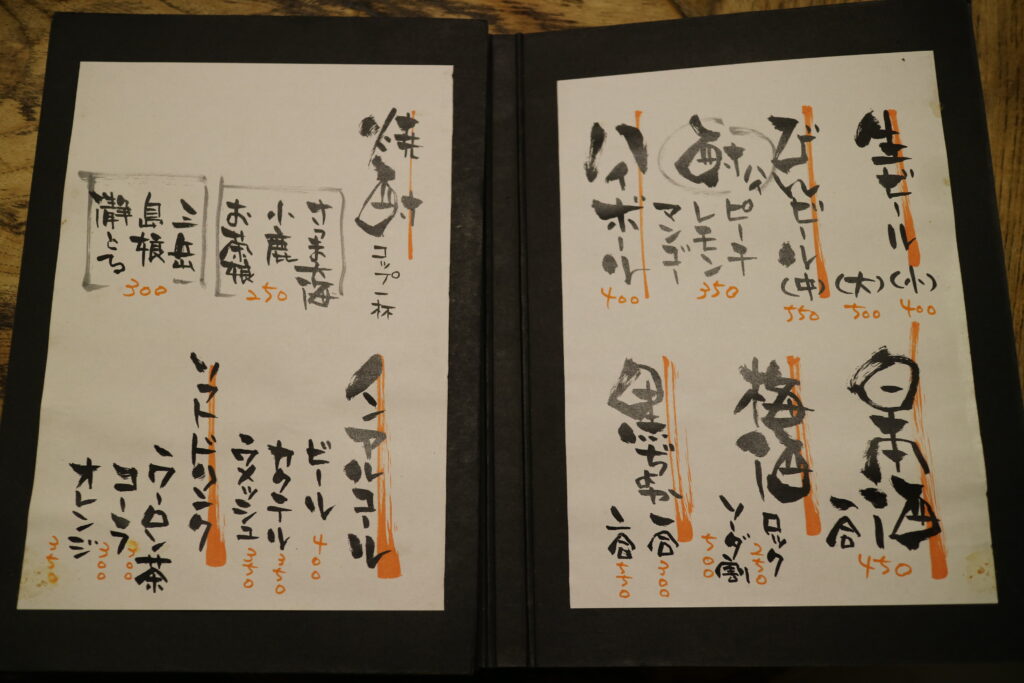 生ビール
(小)
400
(大)
500
びんビール
(中)
550
酎ハイ
ピーチ
レモン
マンゴー
350
ハイボール
400
日本酒
一合
450
梅酒
ロック
ソーダ割
500
黒ぢょか
一合
300
二合
550
焼酎
コップ一杯
さつま海
小鹿
お茶娘
250
三岳
島娘
300
ノンアルコール
ビール
400
カクテル
350
ウメッシュ
350
ソフトドリンク
ウーロン茶
300
コーラ
300
オレンジ